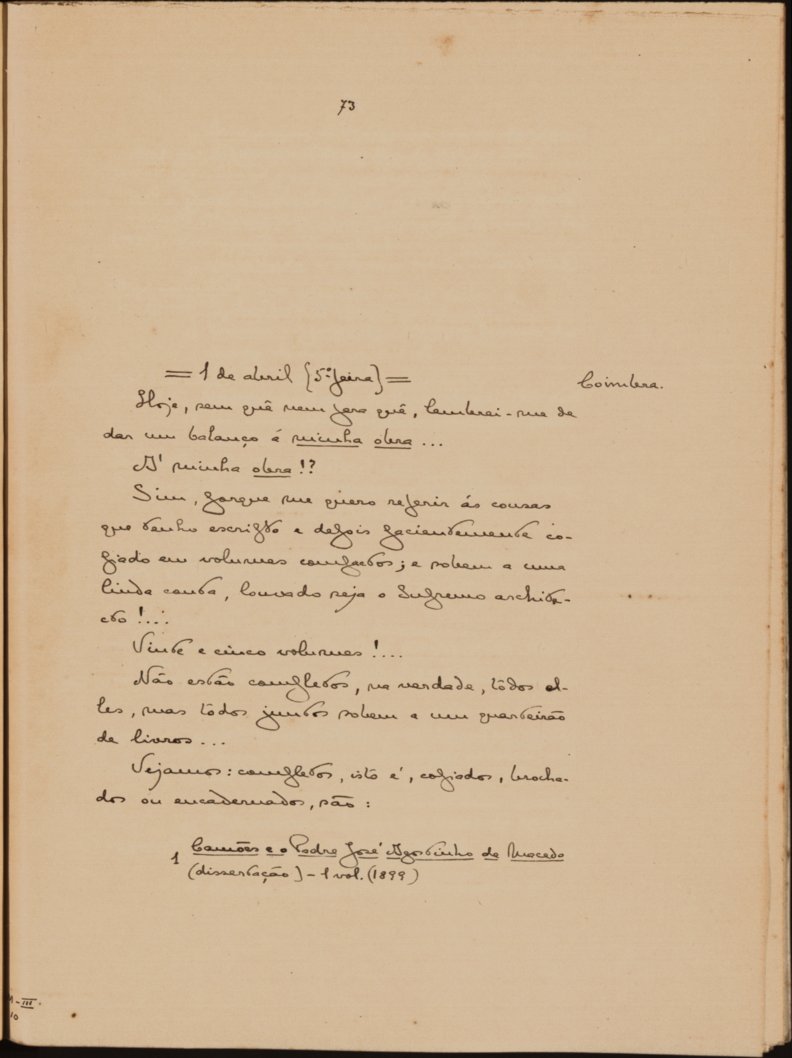 73
= 1 de abril (5ª feira) =
Coimbra.
Hoje, sem quê nem para quê, lembrei-me de
dar um balanço á minha obra ...
A' minha obra !?
Sim, porque me quero referir ás cousas
que tenho escripto e depois pacientemente co-
piado em volumes compactos; e sobem a uma
linda conta, louvado seja o Supremo archite-
cto !...
Vinte e cinco volumes !...
Não estão completos, na verdade, tôdos el-
les, mas tôdos juntos sobem a um quarteirão
de livros ...
Vejamos: completos, isto é, copiados, brocha-
dos ou encadernados, são :
1 Camões e o Padre José Agostinho de Macedo
(dissertação) - 1 vol. (1899)
- III.
10